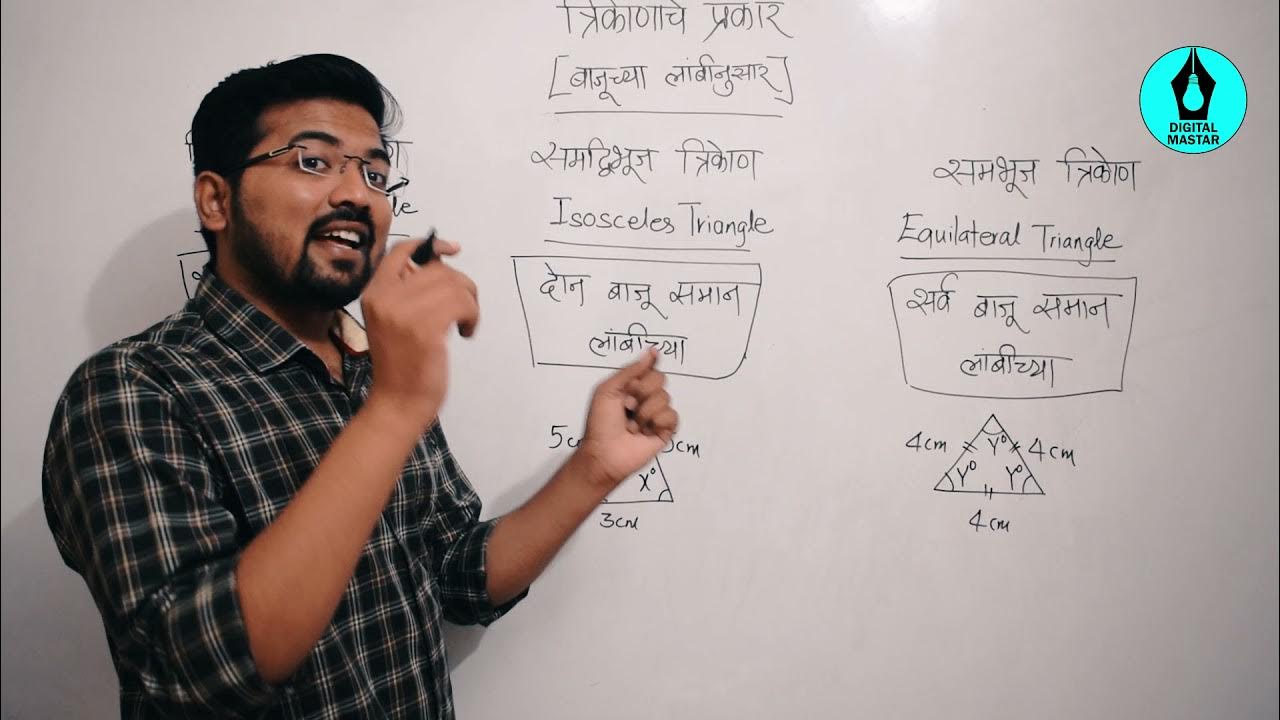 त्रिकोणाचे प्रकार
[बाजूच्या लांबीनुसार]
समद्विभूज त्रिकोण
Isosceles Triangle
दोन बाजू समान
लांबीच्या
3cm
x°
समभूज त्रिकोण
Equilateral Triangle
सर्व बाजू समान
लांबीच्या
4cm
4cm
Y°
Y°
Y°
4cm
DIGITAL
MASTAR